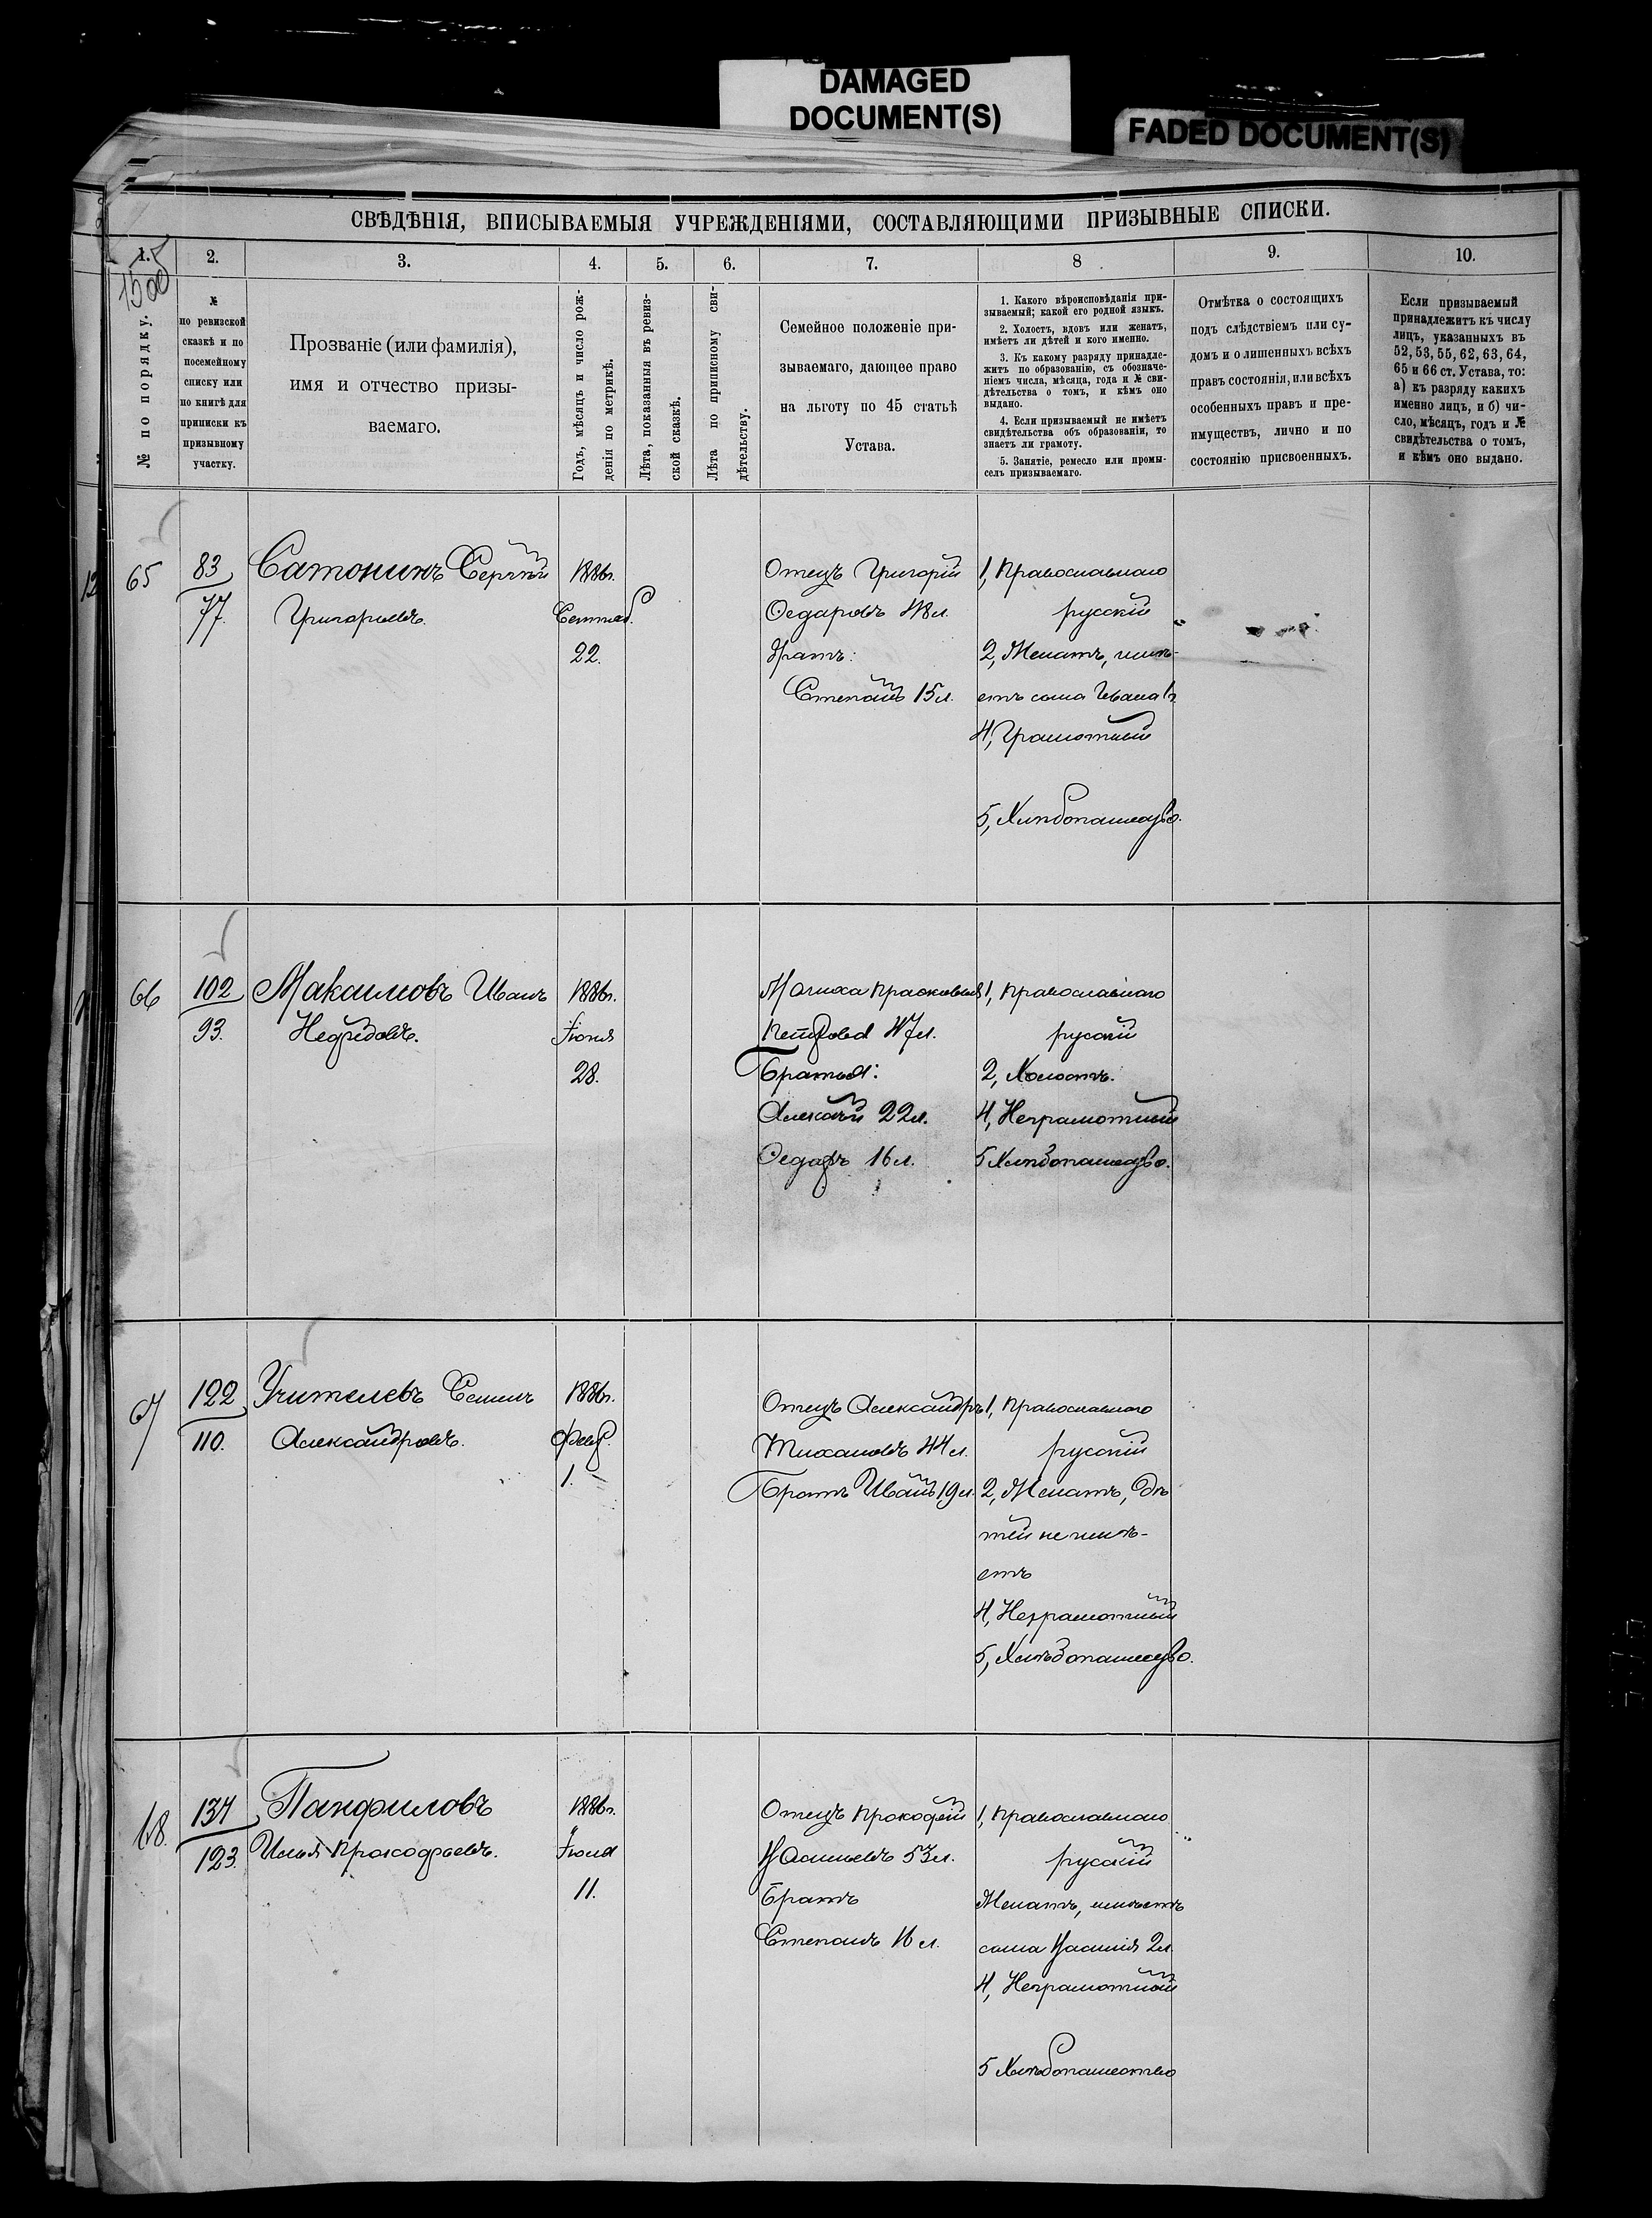 DAMAGED
DOCUMENT(S)
FADED DOCUMENT(S)
СВѢДѢНІЯ, ВПИСЫВАЕМЫЯ УЧРЕЖДЕНІЯМИ, СОСТАВЛЯЮЩИМИ ПРИЗЫВНЫЕ СПИСКИ.
1. 2. 3. 4. 5. 6. 7. 8. 9. 10.
№ по порядку.
№
по ревизской
сказкѣ и по
посемейному
списку или
по книгѣ для
приписки къ
призывному
участку.
Прозваніе (или фамилія),
имя и отчество призы-
ваемаго.
Годъ, мѣсяцъ и число рож-
денія по метрикѣ.
Лѣта, показанныя въ ревиз-
ской сказкѣ.
Лѣта по приписному сви-
дѣтельству.
Семейное положеніе при-
зываемаго, дающее право
на льготу по 45 статьѣ
Устава.
1. Какого вѣроисповѣданія при-
зываемый; какой его родной языкъ.
2. Холостъ, вдовъ или женатъ,
имѣетъ ли дѣтей и кого именно.
3. Къ какому разряду принадле-
житъ по образованію, съ обозначе-
ніемъ числа, мѣсяца, года и № сви-
дѣтельства о томъ, и кѣмъ оно
выдано.
4. Если призываемый не имѣетъ
свидѣтельства объ образованіи, то
знаетъ ли грамоту.
5. Занятіе, ремесло или промы-
селъ призываемаго.
Отмѣтка о состоящихъ
подъ слѣдствіемъ или су-
домъ и о лишенныхъ всѣхъ
правъ состоянія, или всѣхъ
особенныхъ правъ и пре-
имуществъ, лично и по
состоянію присвоенныхъ.
Если призываемый
принадлежитъ къ числу
лицъ, указанныхъ въ
52, 53, 55, 62, 63, 64,
65 и 66 ст. Устава, то:
а) къ разряду какихъ
именно лицъ, и б) чи-
сло, мѣсяцъ, годъ и №
свидѣтельства о томъ,
и кѣмъ оно выдано.
65
83
77.
Сатонинъ Сергѣй
Григорьевъ.
1886г.
Сентяб.
22.
Отецъ Григорій
Ѳедаровъ 48л.
Братъ:
Степанъ 15л.
1, Православнаго
русскій
2, Женатъ, имѣ-
етъ сына Ивана
4, Грамотный
5, Хлѣбопашество.
66
102
93.
Макаимовъ Иванъ
Нефедовъ.
1886г.
Іюня
28.
Мачиха Прасковья
Петрова 47л.
Братья:
Алексѣй 22л.
Ѳедаръ 16л.
1, Православнаго
русскій
2, Холостъ.
4, Неграмотный
5 Хлѣбопашество.
67
122
110.
Учителевъ Семенъ
Александровъ.
1886г.
Февр.
1.
Отецъ Александръ
44л.
Братъ Иванъ 19л.
1, Православнаго
русскій
2, Женатъ, дѣ
тей не имѣ-
етъ
4, Неграмотный
5, Хлѣбопашество.
68.
134
123.
Панфиловъ
Илья Прокофьевъ.
1886г.
Іюля
11.
Отецъ Прокофій
Васильевъ 53л.
Братъ
Степанъ 16л.
1, Православнаго
русскій
Женатъ, имѣетъ
сына Василія 2л.
4, Неграмотный
5 Хлѣбопашество